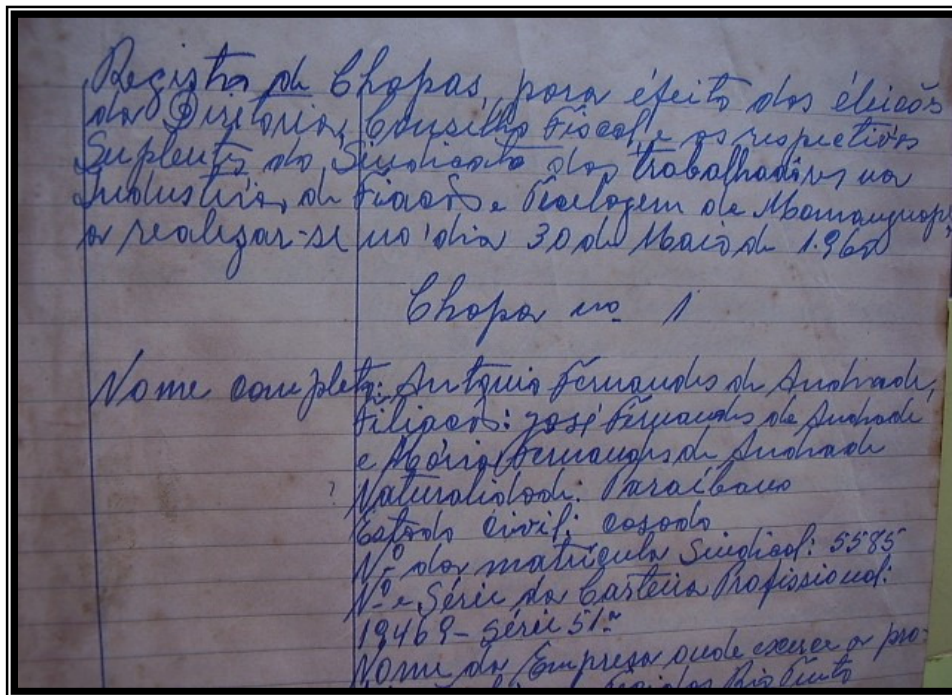 Registro de Chapas, para éfeito das éleicõs
da Diretoria, Consilho Fiscal, e os respectivos
Suplents do Sindicato dos trabalhadôres na
Industrias de Fiacõs e Tecelagem de Mamanguape,
a realizar-se no dia 30 de Maio de 1.960
Chapa nº 1
Nome completo: Antonio Fernandes de Andrade,
Filiacõs: José Fernandes de Andrade
e Maria Fernandes de Andrade
? Naturalidade: Paraibano
Estado Civil: casado
Nº da matrigula Sindical: 5585
Nº e Série da Carteira Profissional:
19469 - Série 51ª
Nome da Empresa onde exerce a pro-
Rio Tinto